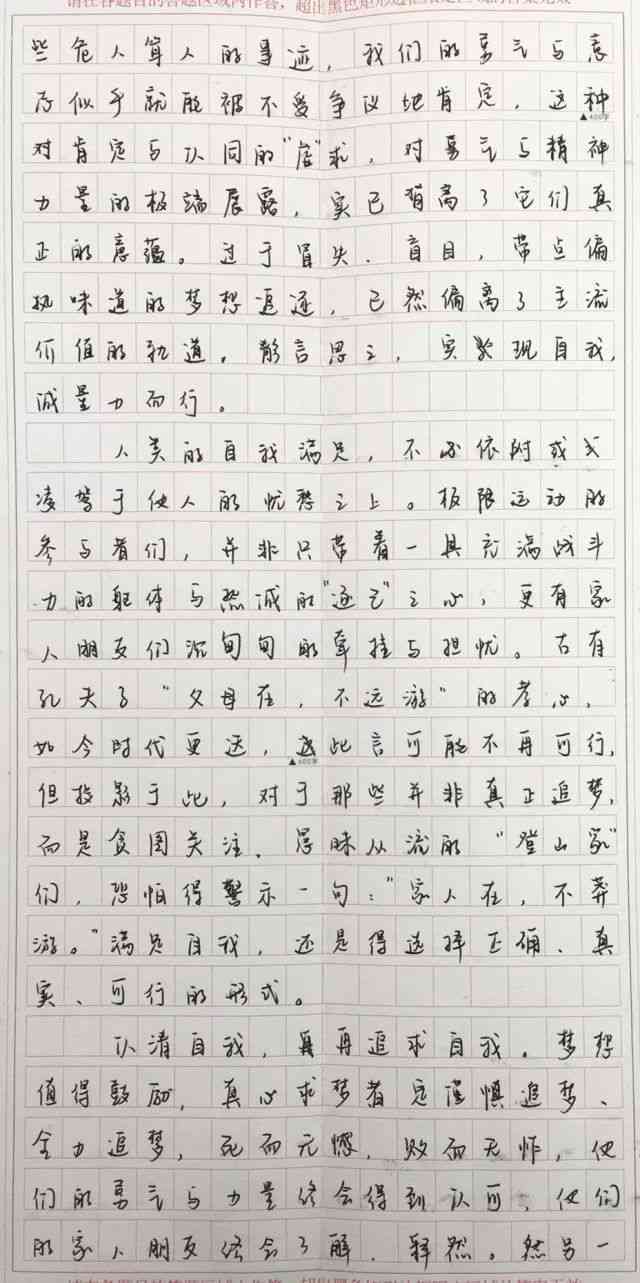 请在各题目的答题区域内作答，超出黑色矩形边框限定区域的答案无效
些危人耸人的事迹，我们的勇气与意
志似乎就能被不受争议地肯定，这种
▲400字
对肯定与认同的“虚”求，对勇气与精神
力量的极端展露，实已背离了它们真
正的意蕴。过于冒失、盲目，带点偏
执味道的梦想追逐，已然偏离了主流
价值的轨道。静言思之，实发现自我，
诚量力而行。
人类的自我满足，不必依附或
凌驾于他人的忧愁之上。极限运动的
参与者们，并非只带着一具充满战斗
力的躯体与热诚的“逐己”之心，更有家
人朋友们沉甸甸的牵挂与担忧。古有
孔夫子“父母在，不远游”的孝心，
如今时代更迭，此言可能不再可行，
▲600字
但投影于此，对于那些并非真正追梦，
而是贪图关注、愚昧从流的“登山家”
们，恐怕得警示一句：“家人在，不莽
游。”满足自我，还是得选择正确、真
实、可行的形式。
认清自我，再追求自我。梦想
值得鼓励，真心求梦者定谨慎追梦、
全力追梦，死而无憾，败而无怍，他
们的勇气与力量终会得到认可，他们
的家人朋友终会了解、释然。然另一